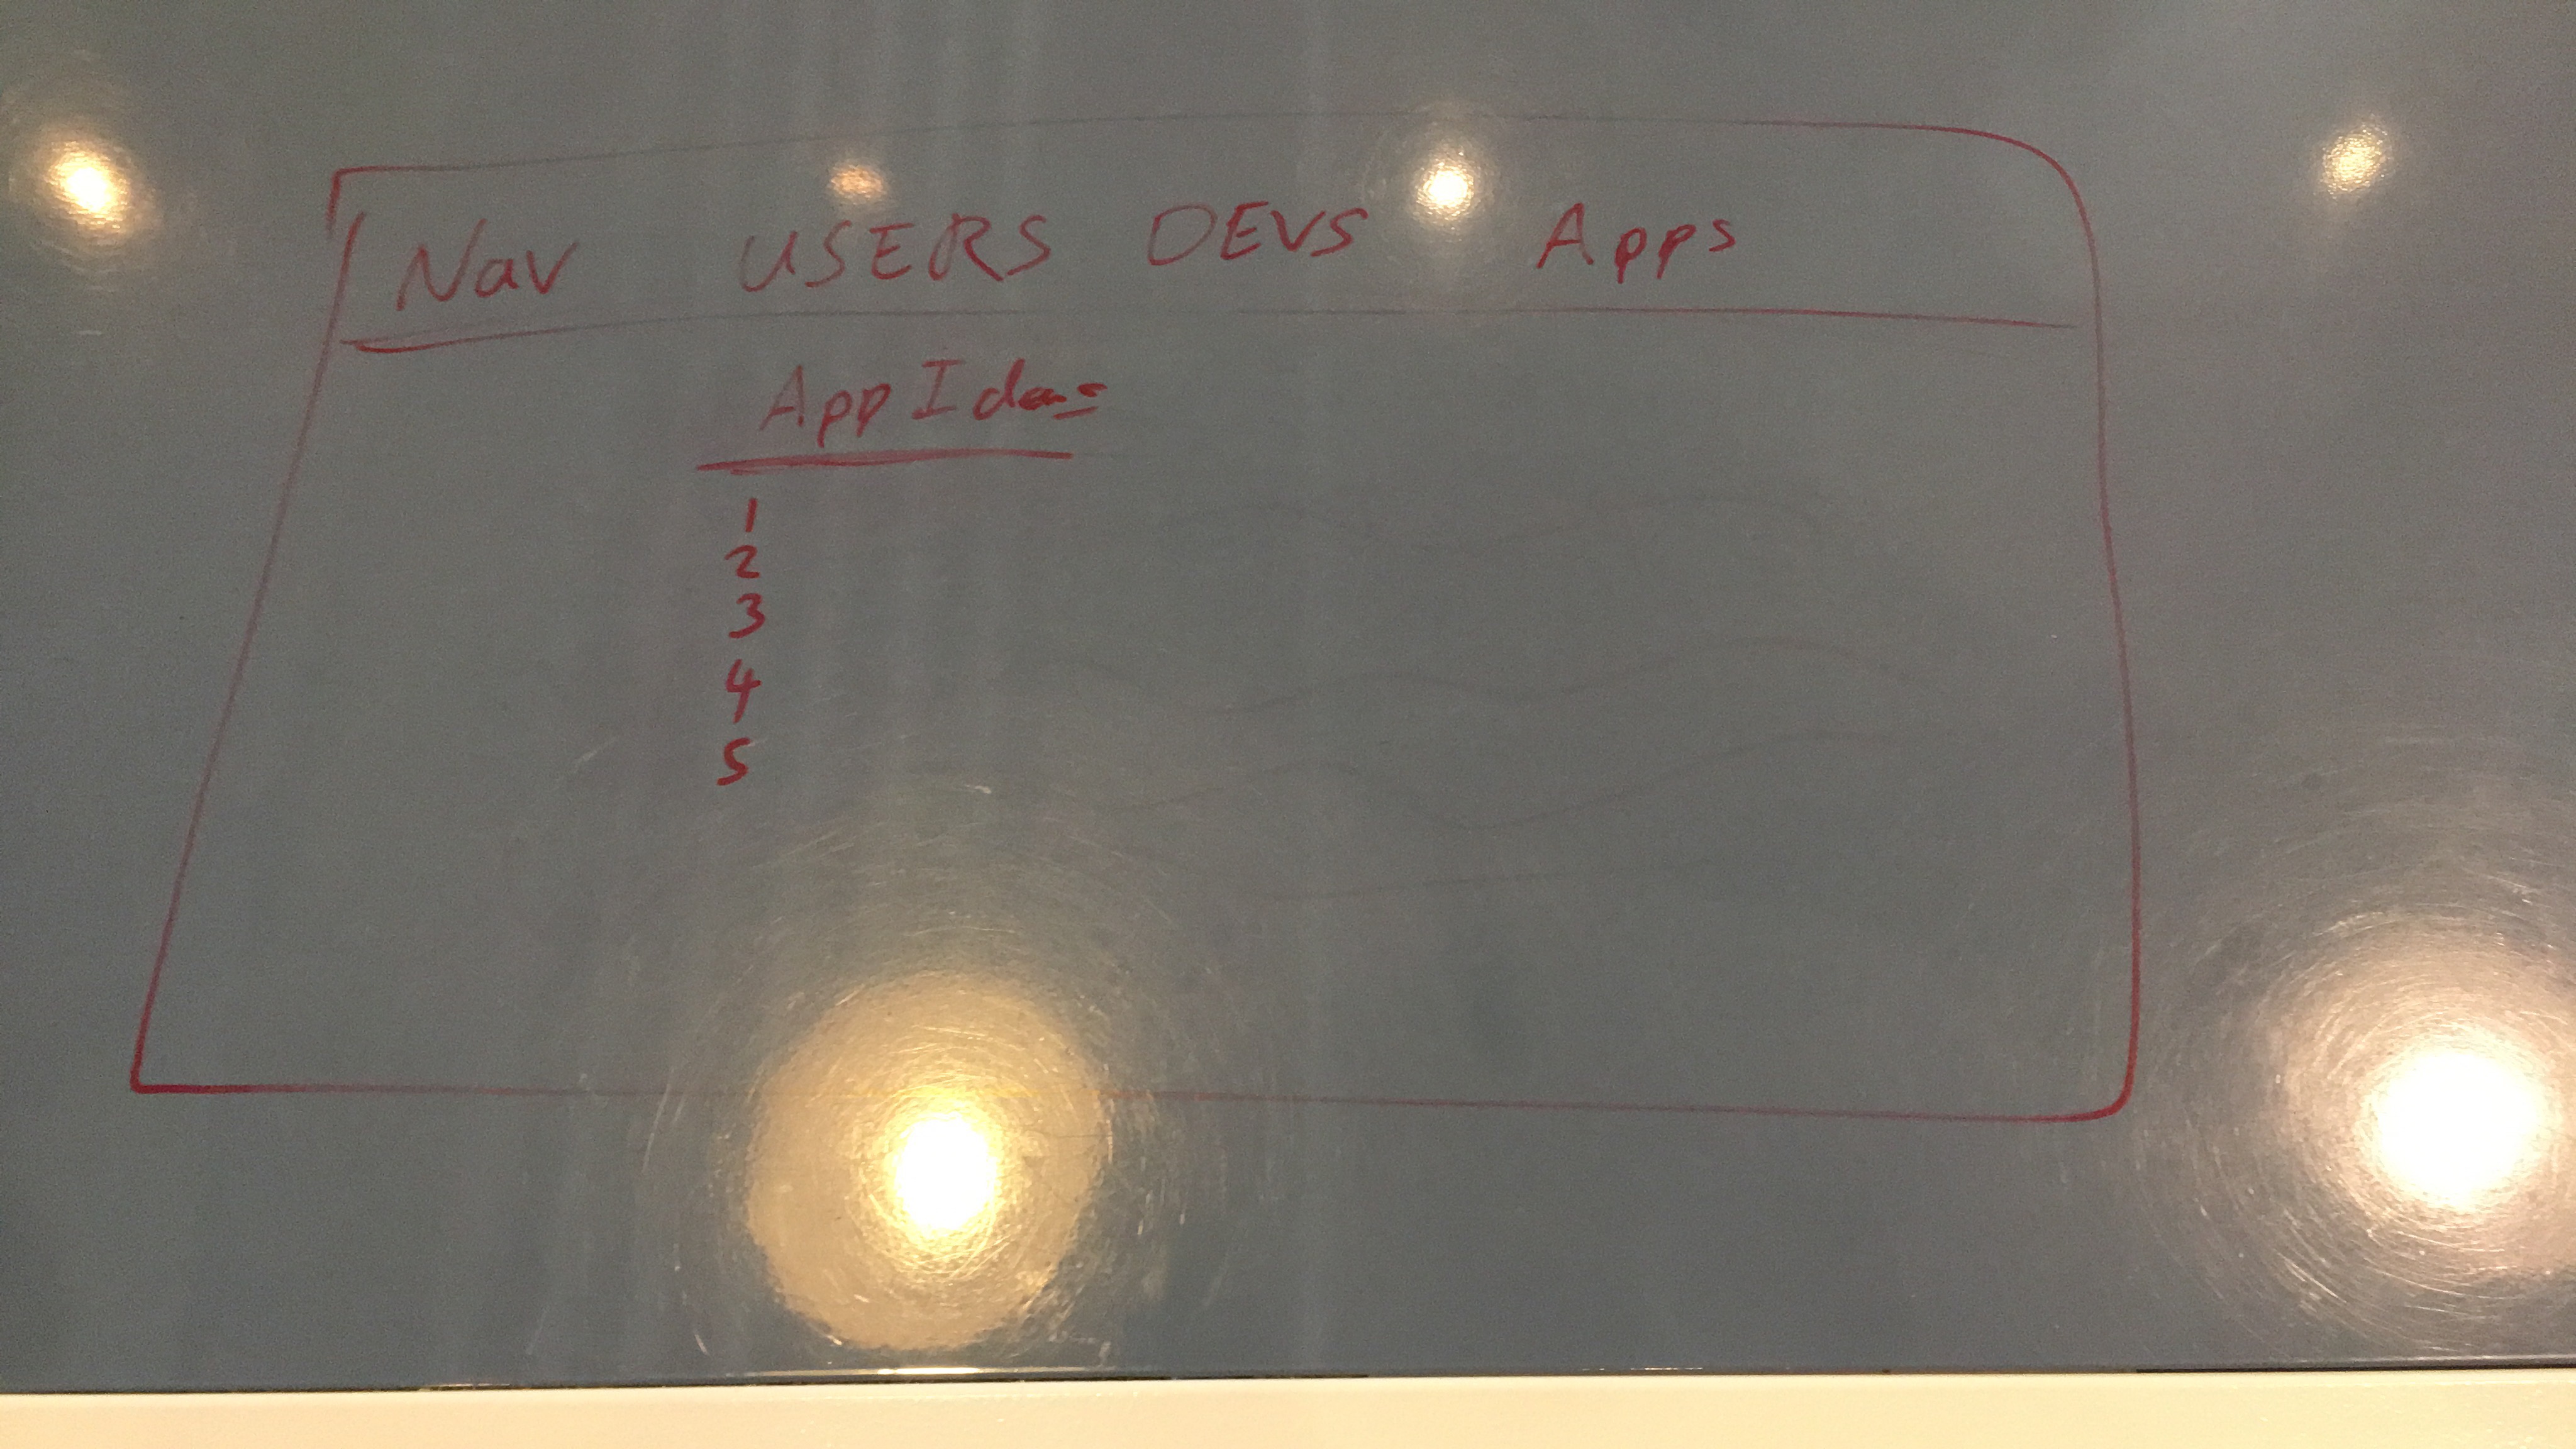 Nav USERS DEVS Apps
App Ideas
1
2
3
4
5